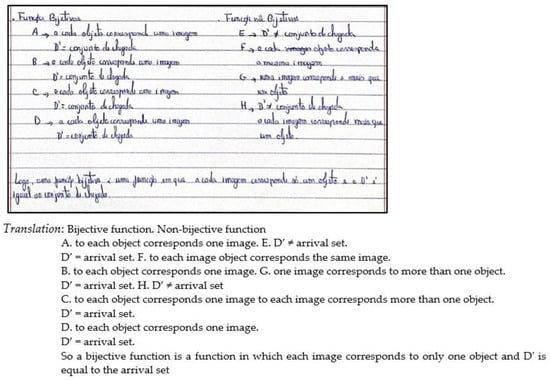 . Funções Bijetivas
A → a cada objeto corresponde uma imagem
D' = conjunto de chegada
B → a cada objeto corresponde uma imagem
D' = conjunto de chegada
C → a cada objeto corresponde uma imagem
D' = conjunto de chegada
D → a cada objeto corresponde uma imagem
D' = conjunto de chegada
. Função não Bijetivas
E → D' ≠ conjunto de chegada
F → a cada objeto corresponde
a mesma imagem
G → uma imagem corresponde a mais que
um objeto
H → D' ≠ conjunto de chegada
a cada imagem corresponde mais que
um objeto.
Logo, uma função bijetiva é uma função em que a cada imagem corresponde só um objeto e o D' é
igual ao conjunto de chegada.
Translation: Bijective function. Non-bijective function
A. to each object corresponds one image. E. D' ≠ arrival set.
D' = arrival set. F. to each image object corresponds the same image.
B. to each object corresponds one image. G. one image corresponds to more than one object.
D' = arrival set. H. D' ≠ arrival set
C. to each object corresponds one image to each image corresponds more than one object.
D' = arrival set.
D. to each object corresponds one image.
D' = arrival set.
So a bijective function is a function in which each image corresponds to only one object and D' is
equal to the arrival set